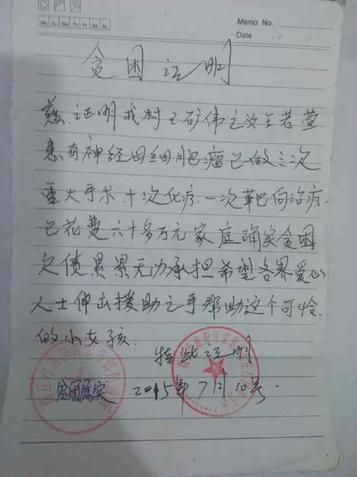 Memo No.
Date
Mo Tu We Th Fr Sa Su
贫困证明
兹证明我村王矿伟之女王若萱
患有神经母细胞瘤已做三次
重大手术.十次化疗.一次靶向治疗.
已花费六十多万元家庭确实贫困
欠债累累无力承担希望各界爱心
人士伸出援助之手帮助这个可怜
的小女孩.
特此证明
贫困属实
2015年7月10号.